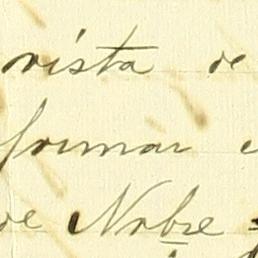 vista de
formar
de Nobre